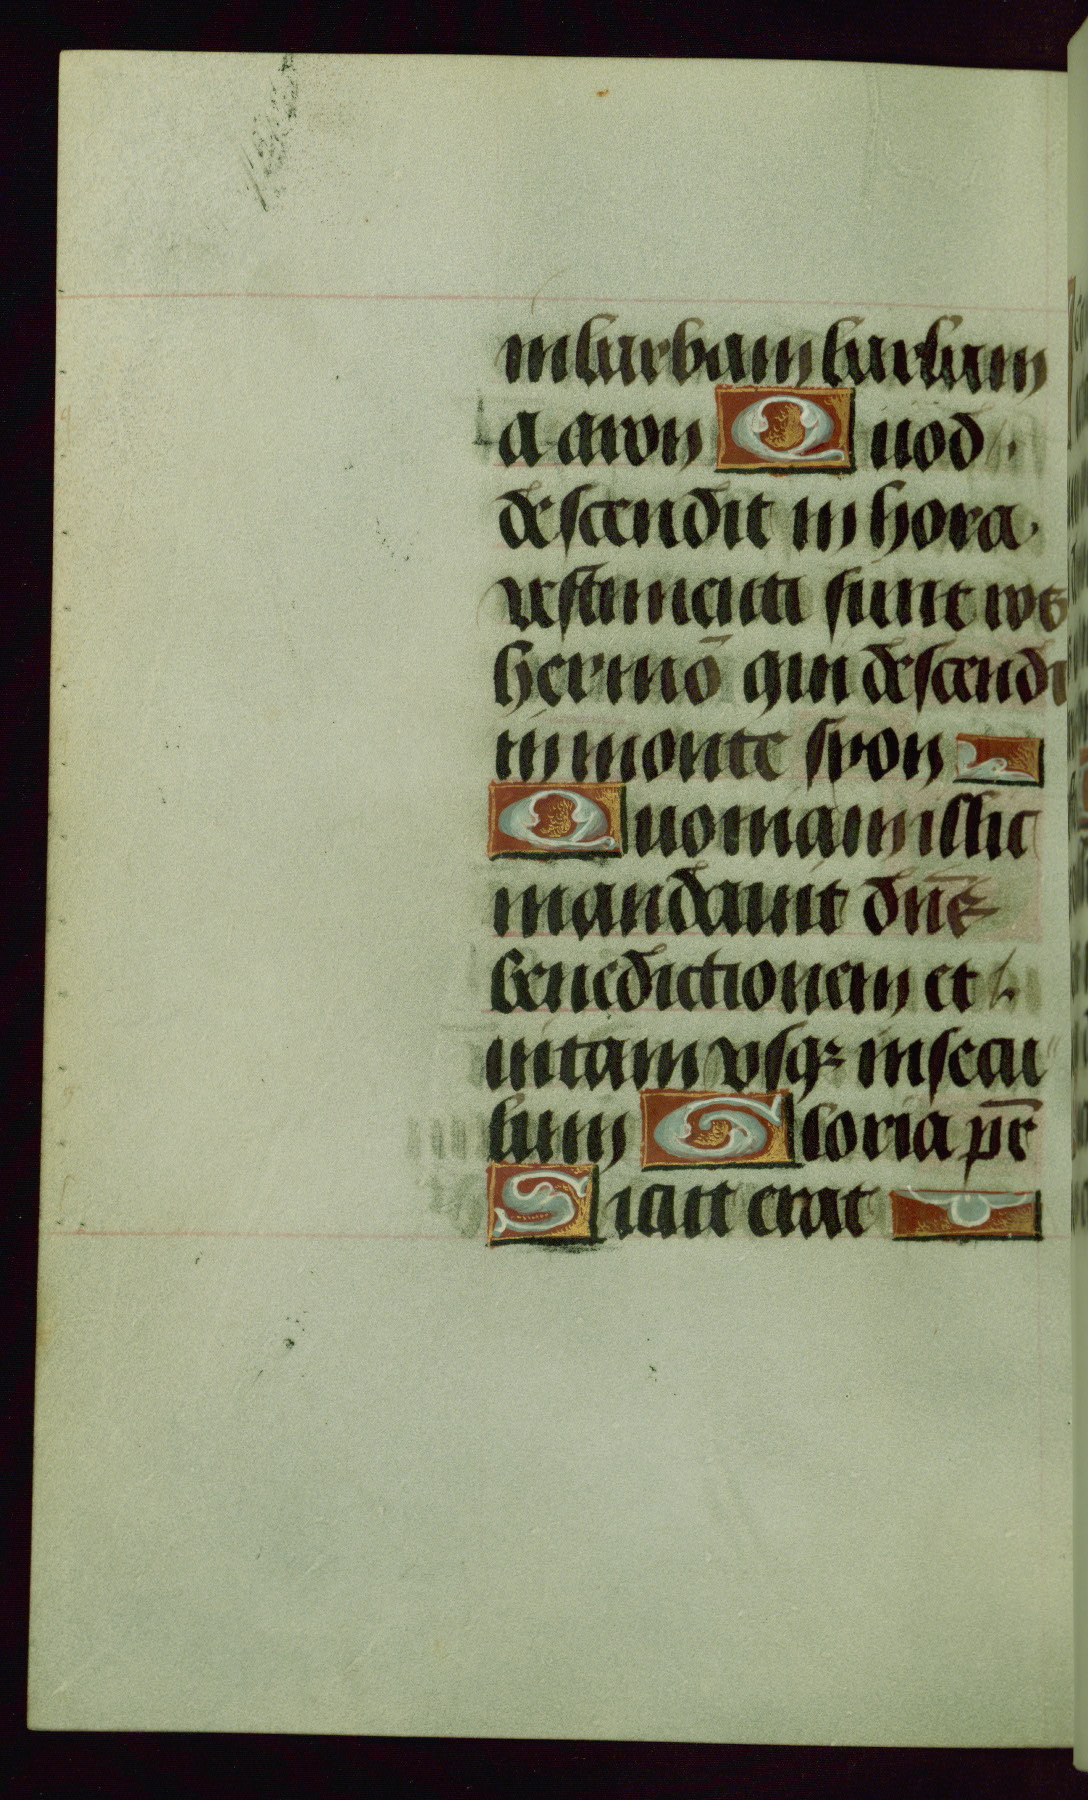 in barbam barbam
a aron Quod
descendit in hora
vestimenti sunt ros
hermō qui descendi
in monte syon
Quoniam illic
mandauit dn̄s
benedictionem et
uitam vsqꝫ in secu
lum Gloria pr̄
Sicut erat